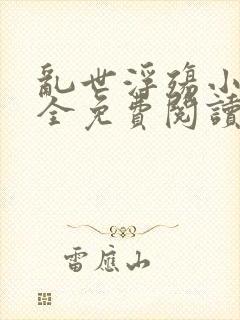 亂世浮殤小
全免費閱讀
雷應山